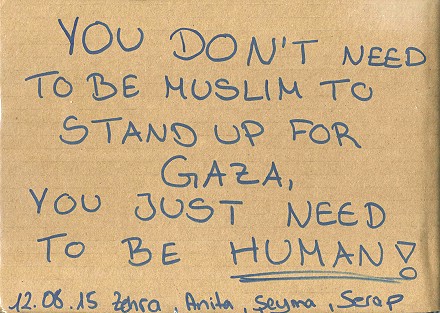 YOU DON'T NEED
TO BE MUSLIM TO
STAND UP FOR
GAZA,
YOU JUST NEED
TO BE HUMAN!
12.08.15 Zehra, Anita, Şeyma, Serap